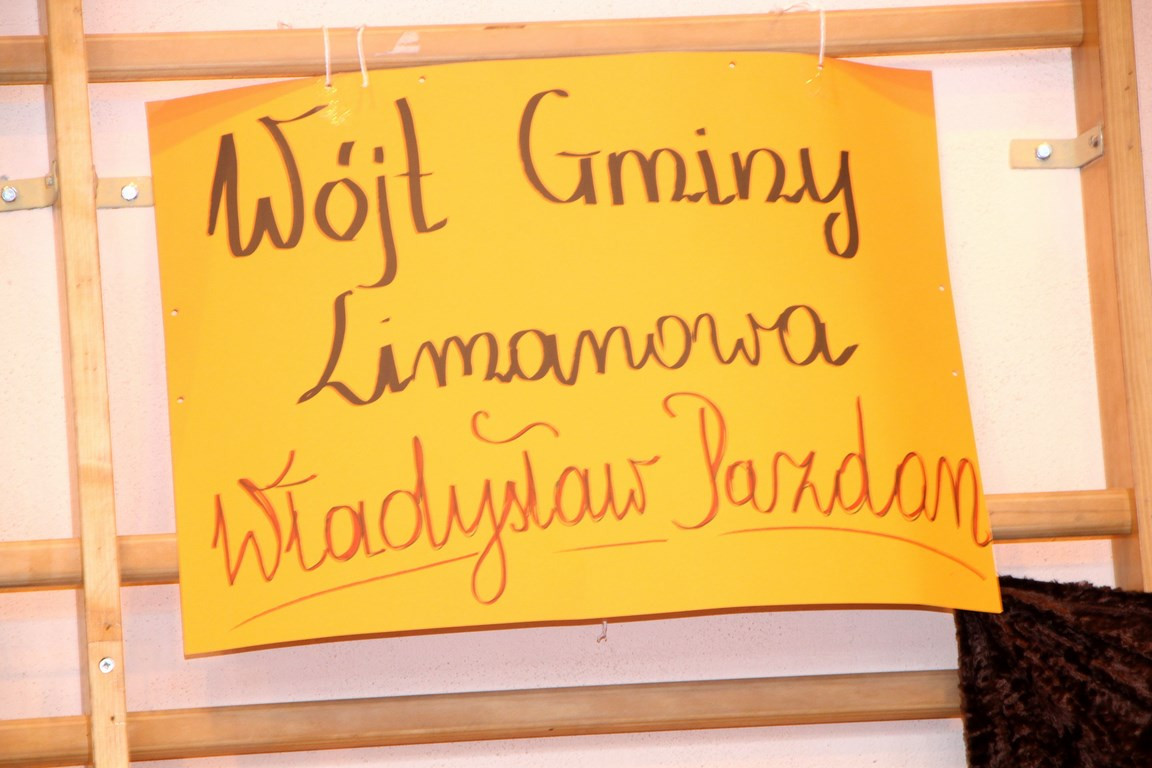 Wójt Gminy
Limanowa
Władysław Pazdan